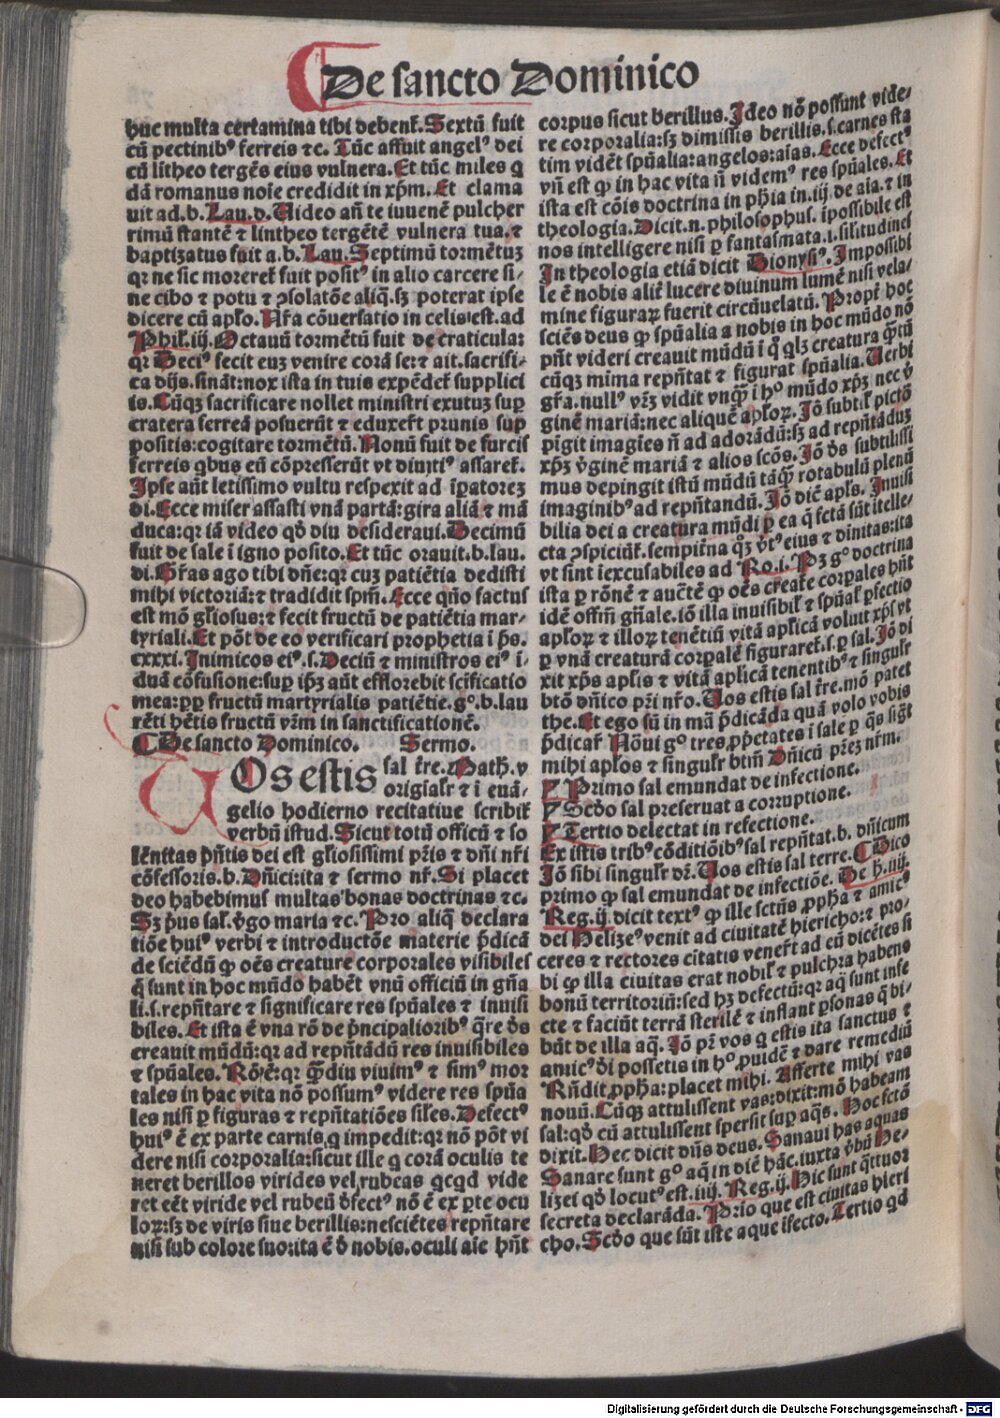 De sancto Dominico
huc multa certamina tibi debent᷑. Sextū fuit
cū pectinibꝰ ferreis ⁊c. Tūc affuit angelꝰ dei
cū litheo tergēs eius vulnera. Et tūc miles q
dā romanus noīe credidit in xp̄m. Et clama
uit ad .b. Lau. d. Uideo añ te iuuenē pulcher
rimū stantē ⁊ lintheo tergētē vulnera tua. ⁊
baptizatus fuit a .b. Lau. Septimū tormētuꝫ
qꝛ ne sic moreret᷑ fuit positꝰ in alio carcere si⸗
ne cibo ⁊ potu ⁊ ꝯsolatōe aliq̄. sꝫ poterat ipse
dicere cū aplo. Nr̄a cōuersatio in celis est. ad
Phil. iij. Octauū tormētū fuit de craticula:
qꝛ Deciꝰ fecit euꝫ venire corā se: ⁊ ait. sacrifi⸗
ca dijs. sinaūt: nox ista in tuis expēdet᷑ supplici
is. Cūqꝫ sacrificare nollet ministri exutuꝫ suꝑ
cratera ferreā posuerūt ⁊ eduxert̄ prunis suꝑ
positis: cogitare tormētū. Nonū fuit de furcis
ferreis qbus eū cōpresserūt vt diutiꝰ assaret᷑.
Ipse aūt letissimo vultu respexit ad īꝑatoreꝫ
di. Ecce miser assasti vnā partā: gira aliā ⁊ mā
duca: qꝛ iā video qd̄ diu desideraui. Decimū
fuit de sale ī igno posito. Et tūc orauit .b. lau.
di. Gr̄as ago tibi dñe: qꝛ cuꝫ patiētia dedisti
mihi victoriā: ⁊ tradidit spm̄. Ecce quō factus
est mō gl̄iosus: ⁊ fecit fructū de patiētia mar⸗
tyriali. Et pōt de eo verificari prophetia ī ps̄.
cxxxi. Inimicos eiꝰ .s. Deciū ⁊ ministros eiꝰ ī⸗
duā cōfusione: suꝑ ip̄ꝫ aūt efflorebit scīficatio
mea: ꝓꝑ fructū martyrialis patiētie. gº. b. lau
rēti hētis fructū vr̄m in sanctificationē.
De sancto Dominico. Sermo.
VOs estis sal tr̄re. Math. v
origialr̄ ⁊ ī euā⸗
gelio hodierno recitatiue scribit᷑
verbū istud. Sicut totū officiū ⁊ so
lēnitas p̄ntis dei est gl̄iosissimi pr̄is ⁊ dñi nr̄i
cōfessoris. b. Dn̄ici: ita ⁊ sermo nr̄. Si placet
deo habebimus multas bonas doctrinas ⁊c.
Sꝫ p̄us sal. v̄go maria ⁊c. Pro aliq̄ declara
tiōe huiꝰ verbi ⁊ introductōe materie p̄dicā
de sciēdū ꝙ oēs creature corporales visibiles
q̄ sunt in hoc mūdo habēt vnū officiū in gn̄a
li .s. repn̄tare ⁊ significare res spūales ⁊ inuisi
biles. Et ista ē vna rō de p̄ncipaliorībꝰ q̄re d̄s
creauit mūdū: qꝛ ad repn̄tādū res inuisibiles
⁊ spūales. Rō ē: qꝛ q̄diu viuimꝰ ⁊ simꝰ mor
tales in hac vita nō possumꝰ videre res spūa
les nisi ꝑ figuras ⁊ repn̄tatiōes sil̄es. Defectꝰ
huiꝰ ē ex parte carnis, q impedit: qꝛ nō pōt vi
dere nisi corporalia: sicut ille q corā oculis te
neret berillos virides vel rubeas qcqd vide
ret eēt viride vel rubeū d̄fectꝰ nō ē ex ꝑte ocu
loꝝ: sꝫ de viris siue berillis: nesciētes repn̄tare
nisi sub colore suo: ita ē d̄ nobis. oculi aīe hn̄t
corpus sicut berillus. Ideo nō possunt vide⸗
re corporalia: sꝫ dimissis berillis .s. carnes sta
tim vidēt spūalia: angelos: aīas. Ecce defectꝰ
vn̄ est ꝙ in hac vita n̄ videmꝰ res spūales. Et
ista est cōis doctrina in ph̄ia in .iij. de aīa. ⁊ in
theologia. Dicit .n. philosophus. īpossibile est
nos intelligere nisi ꝑ fantasmata .i. sil̄itudines
In theologia etiā dicit Dionysiꝰ. Impossibi
le ē nobis alit᷑ lucere diuinum lumē nisi vela⸗
mine figuraꝝ fuerit circūuelatū. Propt᷑ hoc
sciēs deus ꝙ spūalia a nobis in hoc mūdo nō
pn̄t videri creauit mūdū ī q̄ qlꝫ creatura q̄tū
cūqꝫ mima repn̄tat ⁊ figurat spūalia. Uerbi
gr̄a. nullꝰ vr̄ꝫ vidit vnq̄ ī hº mūdo xp̄ꝫ nec v̄
ginē mariā: nec aliquē apl̄oꝝ. Iō subtil᷑ pictō
pīgit imagīes n̄ ad adorādū: sꝫ ad repn̄tāduꝫ
xp̄ꝫ v̄ginē mariā ⁊ alios scōs. Iō d̄s subtilissi
mus depingit istū mūdū tāq̄ rotabulū plenū
imaginibꝰ ad repn̄tandū. Iō dic̄ apl̄s. Inuisi
bilia dei a creatura mūdi ꝑ ea q̄ fctā sūt itelle⸗
cta ꝯspiciūt᷑. sempit̄na q̄ꝫ v̄tꝰ eius ⁊ diuitas: ita
vt sint īexcusabiles ad Ro. i. Pꝫ gº doctrina
ista ꝑ rōnē ⁊ auctē ꝙ oēs creat̄e corpales hn̄t
idē offm̄ gn̄ale. iō illa inuisibil᷑ ⁊ spūal᷑ ꝑfectio
apl̄oꝝ ⁊ illoꝝ tenētiū vitā apl̄icā voluit xp̄s vt
ꝑ vnā creaturā corꝑalē figuraret᷑ .s. ꝑ sal. Iō di
xit xp̄s apl̄is ⁊ vitā apl̄icā tenentibꝰ ⁊ singulr̄
btō dn̄ico pr̄i nr̄o. Uos estis sal tr̄re. mō patet
the. Et ego sū in mā p̄dicāda quā volo vobis
p̄dicar᷑. Nōui gº tres ꝓp̄etates ī sale ꝑ q̄s sigt̄
mihi apl̄os ⁊ singulr̄ btm̄ Dn̄icū pr̄eꝫ nr̄m.
Primo sal emundat de infectione.
Scd̄o sal preseruat a corruptione.
Tertio delectat in refectione.
Ex istis tribꝰ cōditiōibꝰ sal repn̄tat .b. dn̄icum
Iō sibi singulr̄ dꝛ. Uos estis sal terre. Dico
primo ꝙ sal emundat de infectiōe. De h̄. iiij.
Reg. ij. dicit textꝰ ꝙ ille sctūs ꝓph̄a ⁊ amicꝰ
dei Helizeꝰ venit ad ciuitatē hiericho: ⁊ pro⸗
ceres ⁊ rectores citatis venert̄ ad eū dicētes si
bi ꝙ illa ciuitas erat nobil᷑ ⁊ pulchra habens
bonū territoriū: sed hꝫ defectū: qꝛ aq̄ sunt infe
cte ⁊ faciūt terrā sterilē ⁊ inflant ꝑsonas q̄ bi⸗
būt de illa aq̄. Iō pꝛ vos q estis ita sanctus ⁊
amicꝰ d̄i possetis in hº ꝓuidē ⁊ dare remediū
Rn̄dit ꝓph̄a: placet mihi. Afferte mihi vas
nouū. Cūqꝫ attulissent vas: dixit: mō habeam
sal: qd̄ cū attulissent īspersit suꝑ aq̄s. Hoc fctō
dixit. Hec dicit dn̄s deus. Sanaui has aquas
Sanare sunt gº aq̄ in diē hāc. iuxta v̄bū He⸗
lizei qd̄ locutꝰ est. iiij. Reg. ij. Hic sunt q̄ttuor
secreta declarāda. Prio que est ciuitas hieri
cho. Scd̄o que sūt iste aque īfecto. Tertio qd
Digitalisierung gefördert durch die Deutsche Forschungsgemeinschaft - DFG